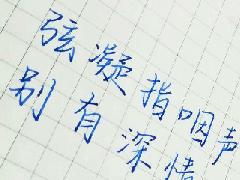 弦凝指咽声
别有深情